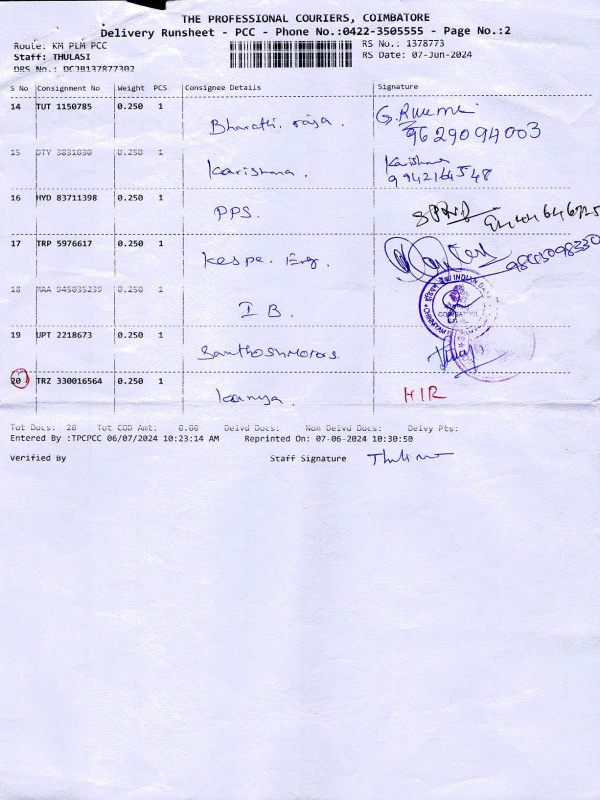 THE PROFESSIONAL COURIERS, COIMBATORE
Delivery Runsheet - PCC - Phone No.:0422-3505555 - Page No.:2
Route: KM PLM PCC RS No.: 1378773
Staff: THULASI RS Date: 07-Jun-2024
DRS No.: DCJB137877302
S No Consignment No Weight PCS Consignee Details Signature
14 TUT 1150785 0.250 1 Bharathi raja. G.
9629094003
15 DTY 3831030 0.250 1 Karishma. Karishma
9942164548
16 HYD 83711398 0.250 1 PPS.
17 TRP 5976617 0.250 1 Kespe. Eng. 9843098330
18 MAA 945035239 0.250 1 I B.
19 UPT 2218673 0.250 1 Santhosh Motors.
20 TRZ 330016564 0.250 1 Kanya. HIR
Tot Docs: 20 Tot COD Amt: 0.00 Delvd Docs: Non Delvd Docs: Delvy Pts:
Entered By :TPCPCC 06/07/2024 10:23:14 AM Reprinted On: 07-06-2024 10:30:50
Verified By Staff Signature